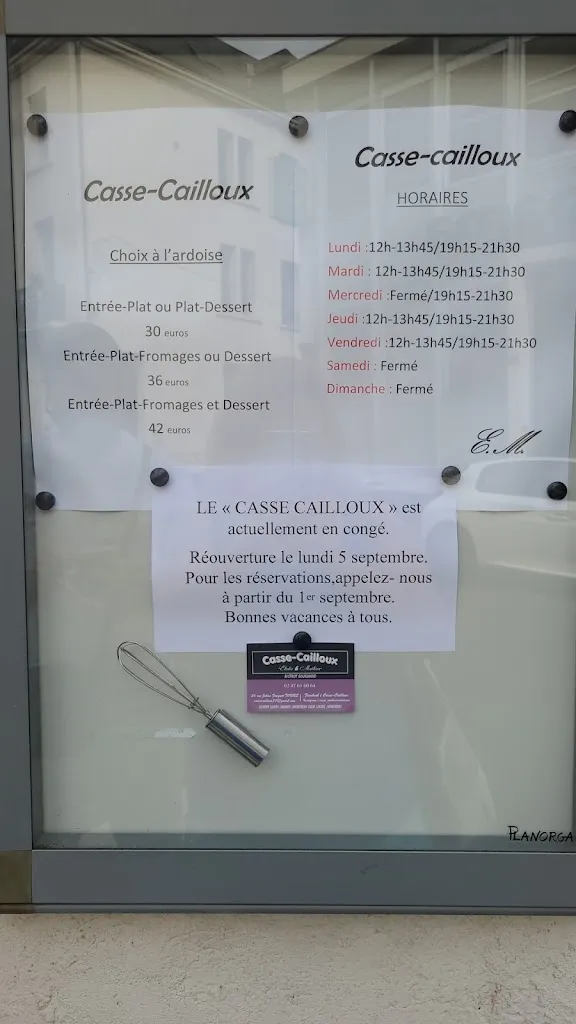 Casse-Cailloux
Choix à l'ardoise
Entrée-Plat ou Plat-Dessert
30 euros
Entrée-Plat-Fromages ou Dessert
36 euros
Entrée-Plat-Fromages et Dessert
42 euros
Casse-cailloux
HORAIRES
Lundi :12h-13h45/19h15-21h30
Mardi : 12h-13h45/19h15-21h30
Mercredi :Fermé/19h15-21h30
Jeudi :12h-13h45/19h15-21h30
Vendredi :12h-13h45/19h15-21h30
Samedi : Fermé
Dimanche : Fermé
E.M.
LE « CASSE CAILLOUX » est
actuellement en congé.
Réouverture le lundi 5 septembre.
Pour les réservations,appelez- nous
à partir du 1er septembre.
Bonnes vacances à tous.
Casse-Cailloux
PLANORGA